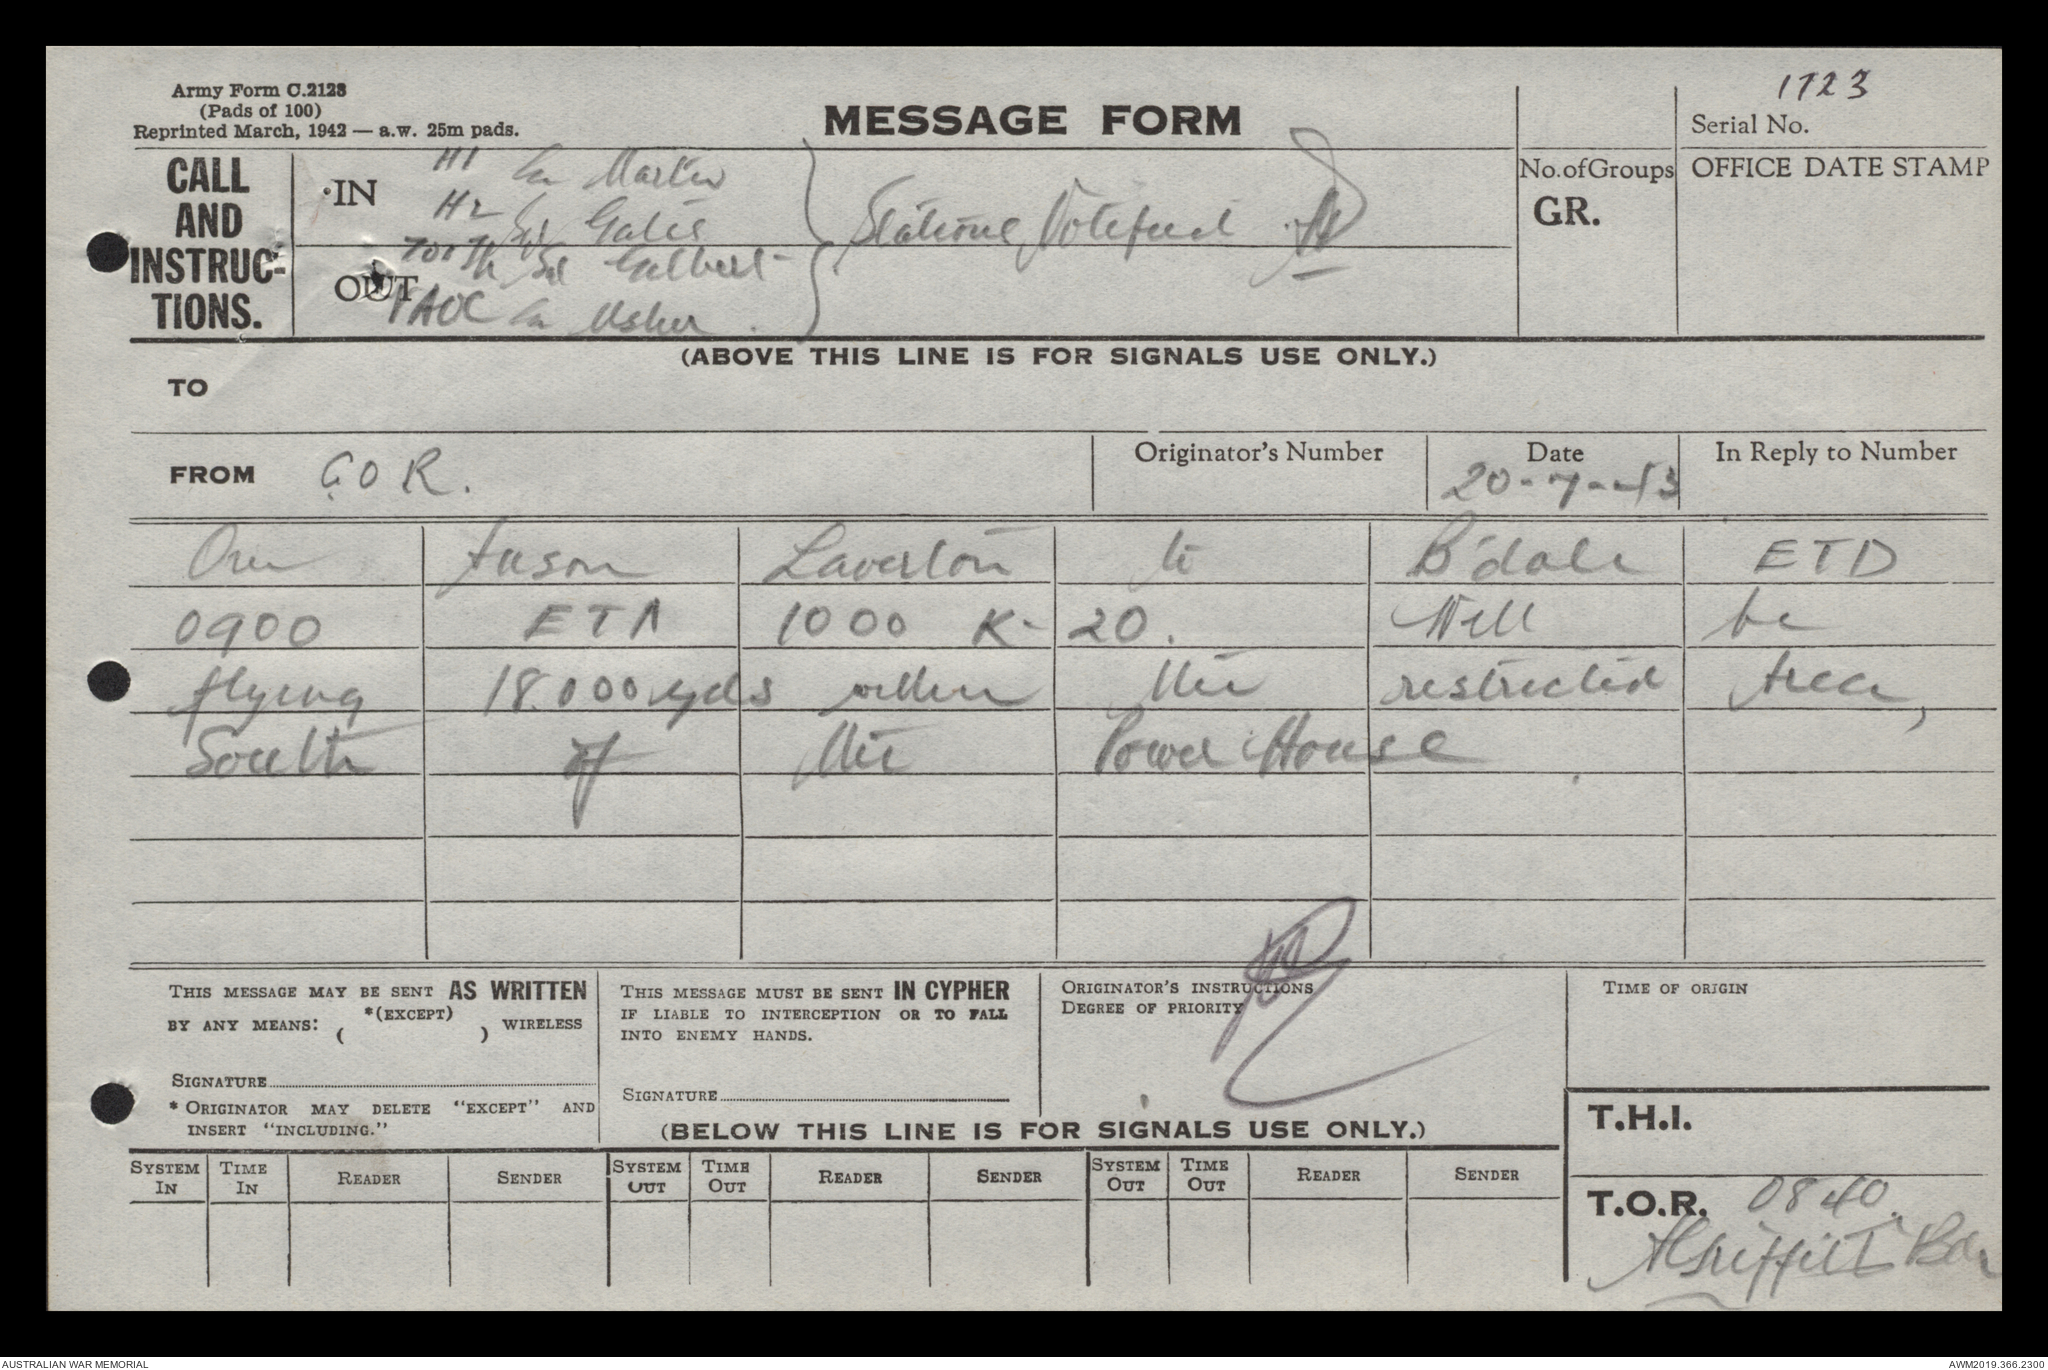 Army Form C.2128
(Pads of 100)
Reprinted March, 1942 — a.w. 25m pads.
MESSAGE FORM
1723
Serial No.
CALL
AND
INSTRUC-
TIONS.
IN
H1 Gnr Martin
H2 Gates
OUT
701 Gilbert
Gnr Usher
Stations Notified
No. of Groups
GR.
OFFICE DATE STAMP
(ABOVE THIS LINE IS FOR SIGNALS USE ONLY.)
TO
FROM G.O.R.
Originator's Number
Date
20-7-43
In Reply to Number
One Anson Laverton to B'dale ETD
0900 ETA 1000 K-20. Will be
flying 18.000 yds within the restricted Area,
South of the Power House
THIS MESSAGE MAY BE SENT AS WRITTEN
BY ANY MEANS: *(EXCEPT) ( ) WIRELESS
SIGNATURE
* ORIGINATOR MAY DELETE "EXCEPT" AND
INSERT "INCLUDING."
THIS MESSAGE MUST BE SENT IN CYPHER
IF LIABLE TO INTERCEPTION OR TO FALL
INTO ENEMY HANDS.
SIGNATURE
ORIGINATOR'S INSTRUCTIONS
DEGREE OF PRIORITY
TIME OF ORIGIN
(BELOW THIS LINE IS FOR SIGNALS USE ONLY.)
T.H.I.
SYSTEM IN TIME IN READER SENDER SYSTEM OUT TIME OUT READER SENDER SYSTEM OUT TIME OUT READER SENDER
T.O.R. 0840.
Griffith Bdr
AUSTRALIAN WAR MEMORIAL
AWM2019.366.2300